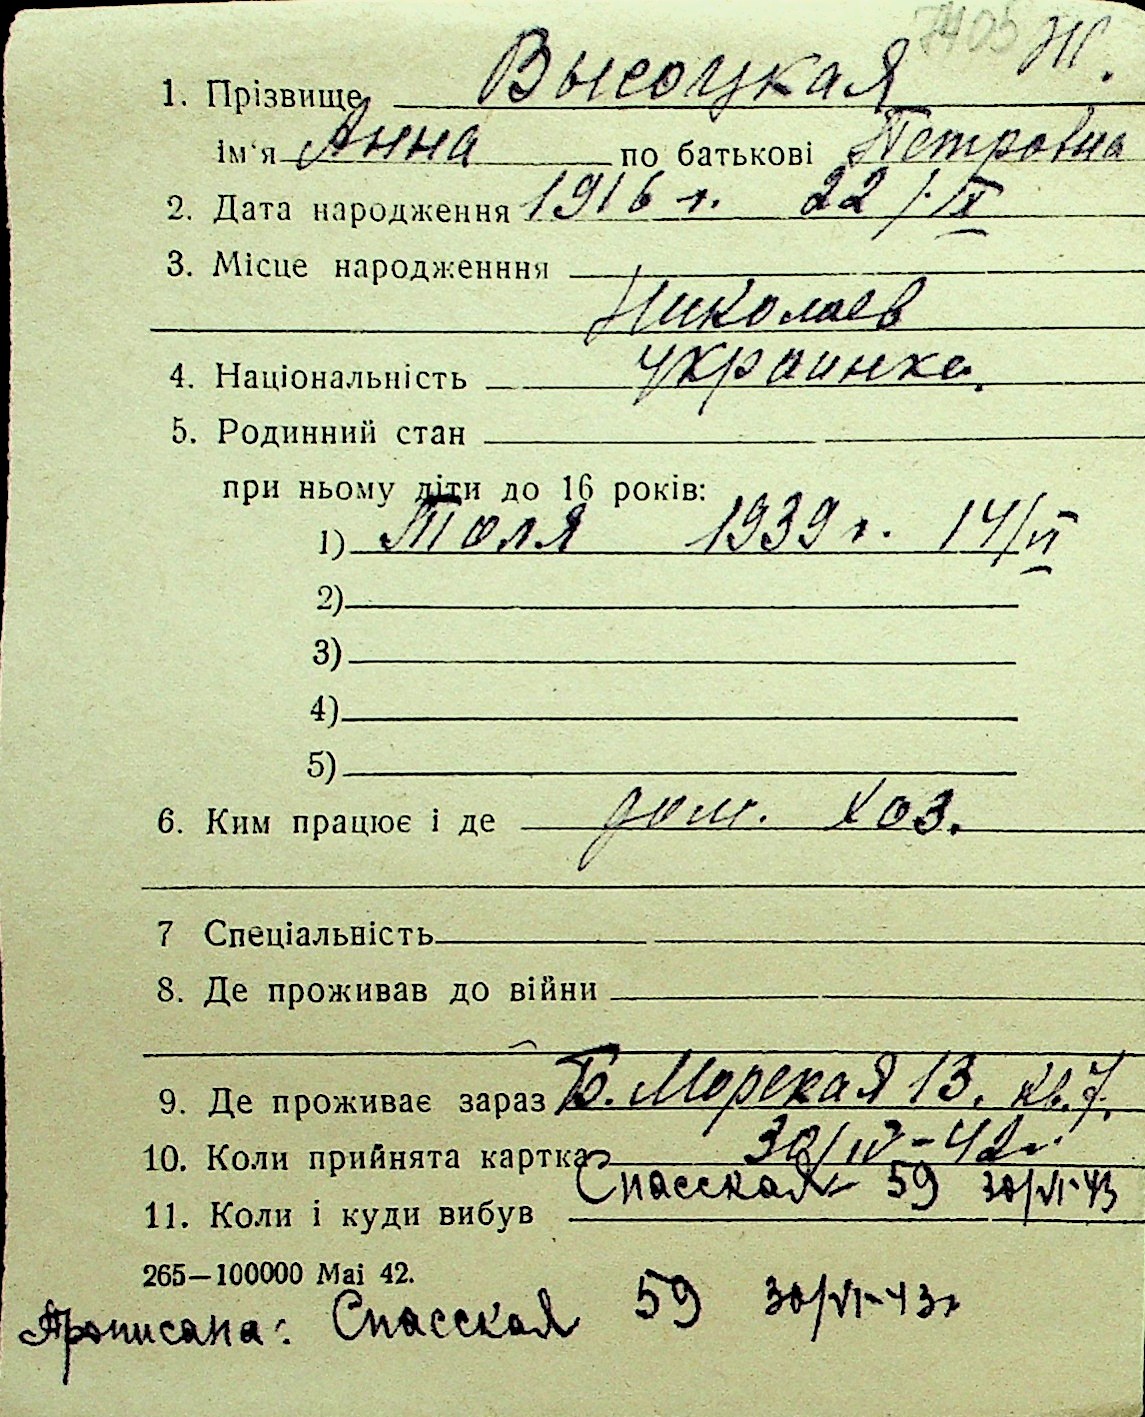 7405 Ж.
1. Прізвище Высоцкая
ім'я Анна по батькові Петровна
2. Дата народження 1916 г. 22/X
3. Місце народженння
Николаев
4. Національність украинка.
5. Родинний стан
при ньому діти до 16 років:
1) Толя 1939 г. 14/VI
2)
3)
4)
5)
6. Ким працює і де дом. хоз.
7 Спеціальність
8. Де проживав до війни
9. Де проживає зараз Б. Морская 13. кв. 7.
10. Коли прийнята картка 30/IV-42г.
Спасская 59 30/VI-43
11. Коли і куди вибув
265—100000 Маі 42.
Прописана: Спасская 59 30/VI-43г